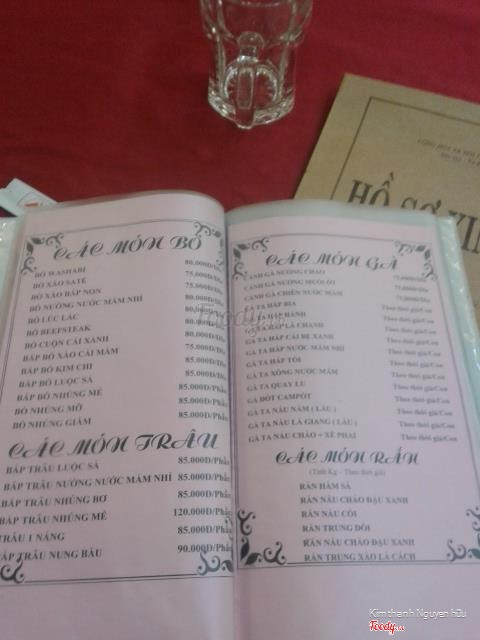 HỒ SƠ XIN
CÁC MÓN BÒ
BÒ WASHABI 80.000Đ/Dĩa
BÒ XÀO SATẾ 75.000Đ/Dĩa
BÒ XÀO BẮP NON 75.000Đ/Dĩa
BÒ NƯỚNG NƯỚC MẮM NHĨ 80.000Đ/Dĩa
BÒ LÚC LẮC 80.000Đ/Dĩa
BÒ BEEFSTEAK 80.000Đ/Dĩa
BÒ CUỘN CẢI XANH 80.000Đ/Dĩa
BẮP BÒ XÀO CẢI MẦM 75.000Đ/Dĩa
BẮP BÒ KIM CHI
BẮP BÒ LUỘC SẢ 85.000Đ/Phần
BẮP BÒ NHÚNG MẺ 85.000Đ/Phần
BÒ NHÚNG MỠ 85.000Đ/Phần
BÒ NHÚNG GIẤM 85.000Đ/Phần
CÁC MÓN TRÂU
BẮP TRÂU LUỘC SẢ 85.000Đ/Phần
BẮP TRÂU NƯỚNG NƯỚC MẮM NHĨ 85.000Đ/Phần
BẮP TRÂU NHÚNG BƠ 85.000Đ/Phần
BẮP TRÂU NHÚNG MẺ 120.000Đ/Phần
TRÂU 1 NẮNG 85.000Đ/Phần
BẮP TRÂU NUNG BẦU 90.000Đ/Phần
CÁC MÓN GÀ
CÁNH GÀ NƯỚNG CHAO 75.000Đ/Dĩa
CÁNH GÀ NƯỚNG MUỐI ỚT 75.000Đ/Dĩa
CÁNH GÀ CHIÊN NƯỚC MẮM 75.000Đ/Dĩa
GÀ TA HẤP BIA Theo thời giá/Con
GÀ TA HẤP HÀNH Theo thời giá/Con
GÀ TA HẤP LÁ CHANH Theo thời giá/Con
GÀ TA HẤP CẢI BẸ XANH Theo thời giá/Con
GÀ TA HẤP NƯỚC MẮM NHĨ Theo thời giá/Con
GÀ TA HẤP TỎI Theo thời giá/Con
GÀ TA XÔNG NƯỚC MẮM Theo thời giá/Con
GÀ TA QUAY LU Theo thời giá/Con
GÀ ĐỐT CAMPỐT Theo thời giá/Con
GÀ TA NẤU NẤM ( LẨU ) Theo thời giá/Con
GÀ TA NẤU LÁ GIANG ( LẨU ) Theo thời giá/Con
GÀ TA NẤU CHÁO - XÉ PHAI Theo thời giá/Con
CÁC MÓN RẮN
(Tính Kg - Theo thời giá)
RẮN HẦM SẢ
RẮN NẤU CHÁO ĐẬU XANH
RẮN NẤU CÔI
RẮN TRUNG DỒI
RẮN NẤU CHÁO ĐẬU XANH
RẮN TRUNG XÀO LÁ CÁCH
Foody.vn
Kimthanh Nguyen hữu
Foody.vn